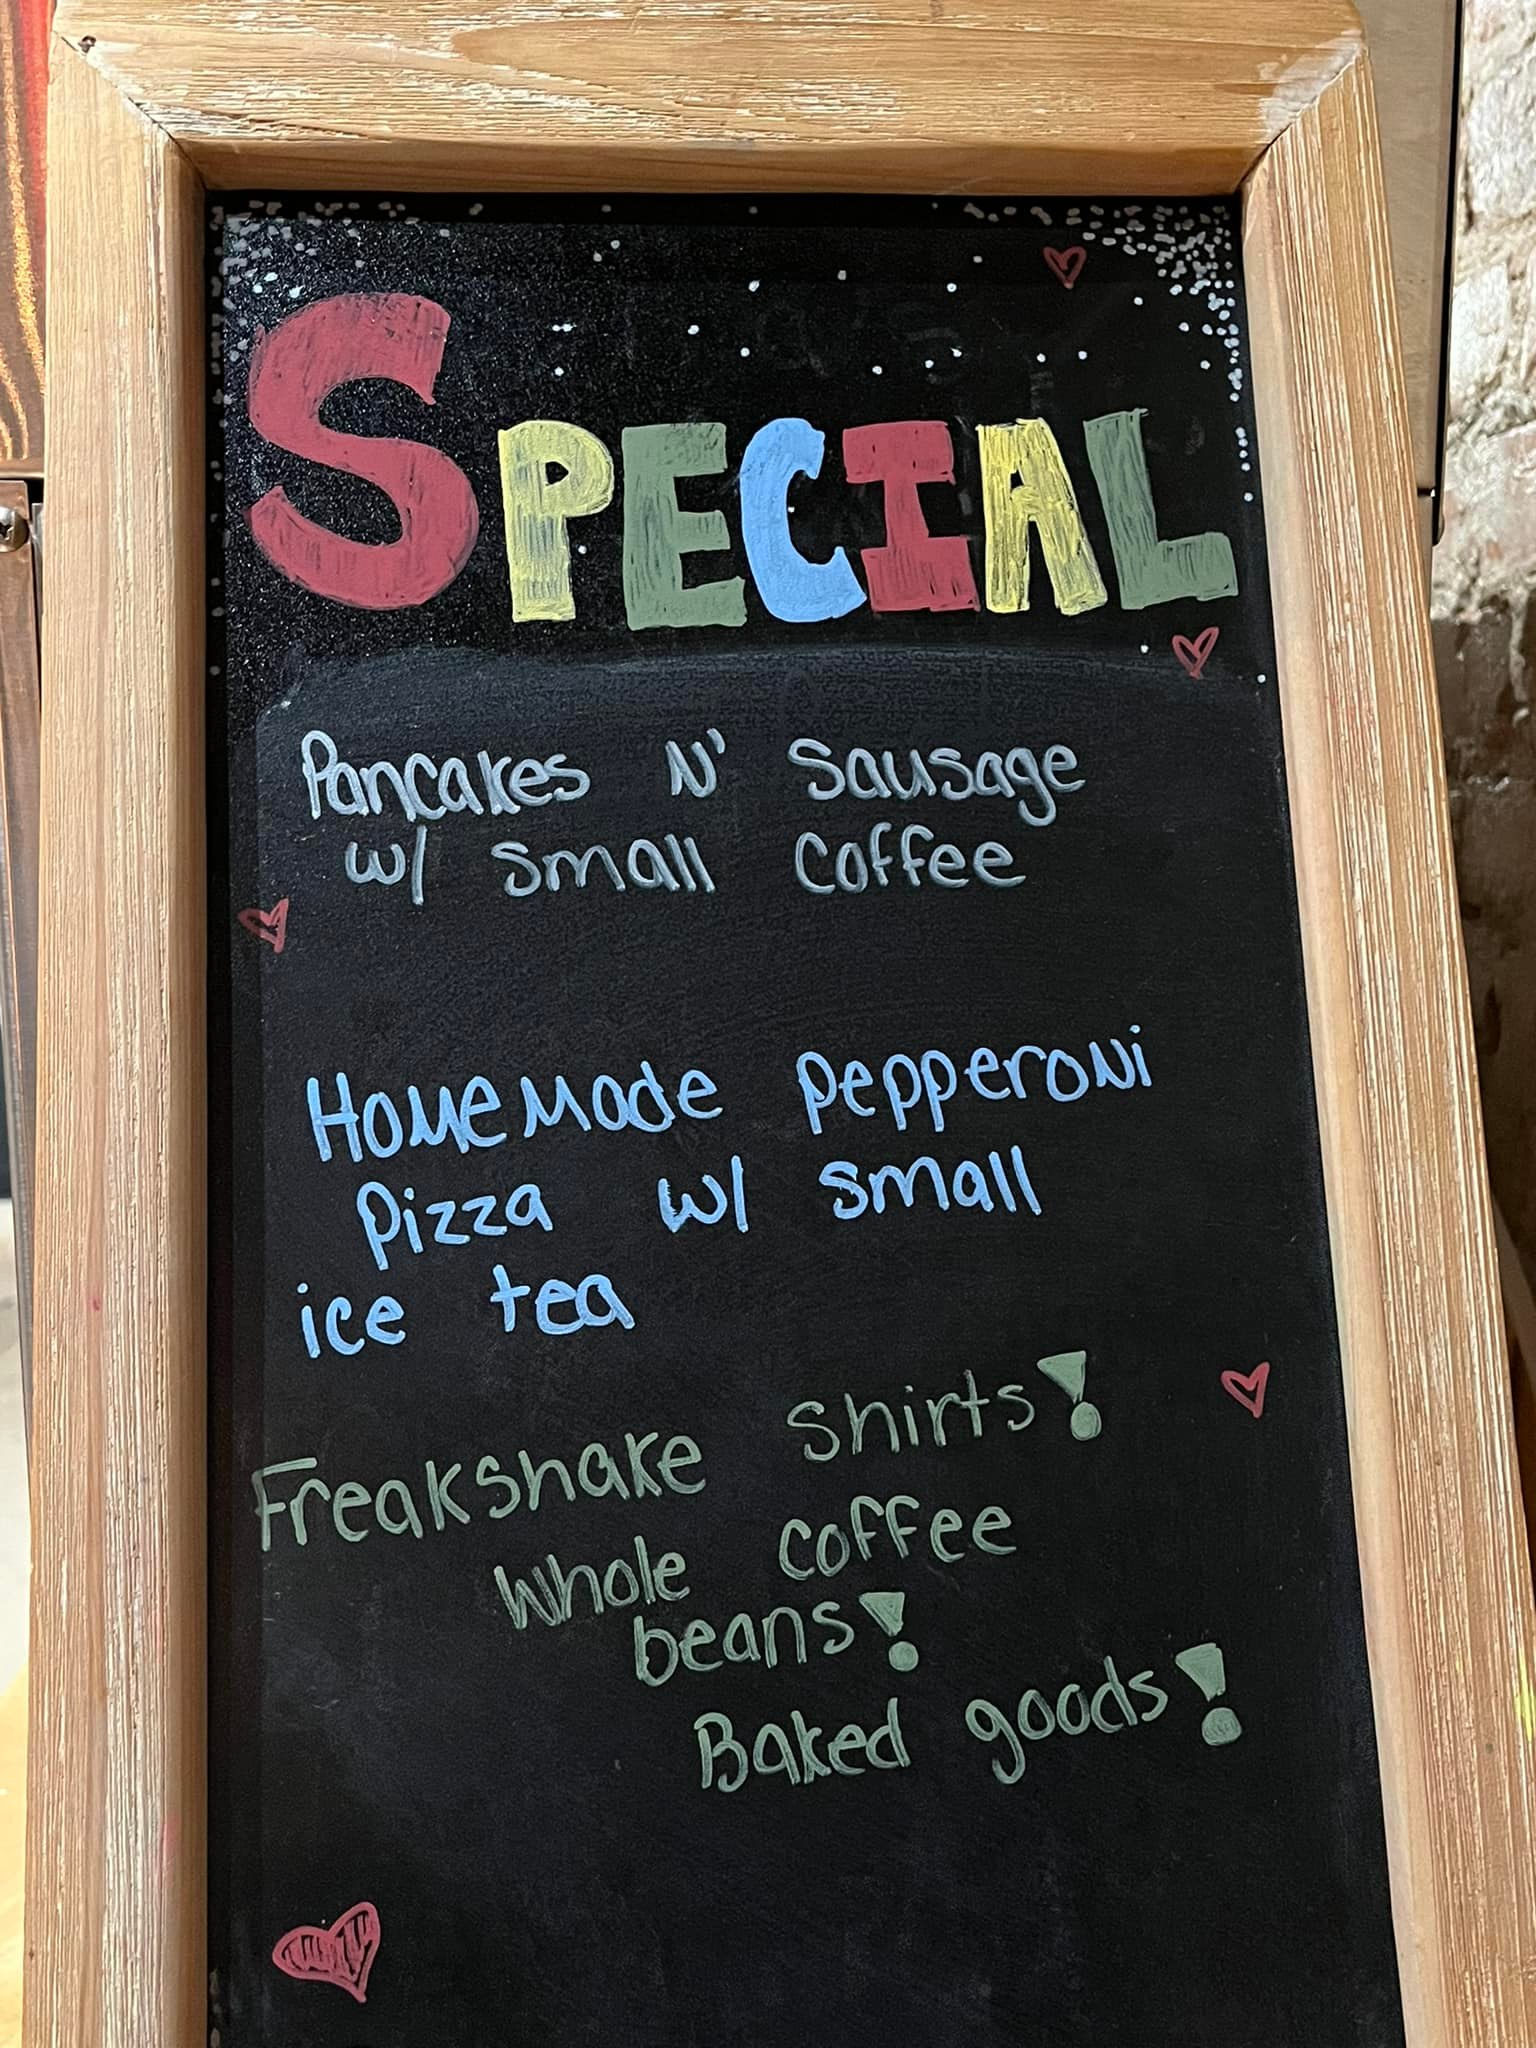 SPECIAL
Pancakes N' Sausage
w/ small coffee
HomeMade pepperoni
pizza w/ small
ice tea
Freakshake shirts!
Whole coffee
beans!
Baked goods!